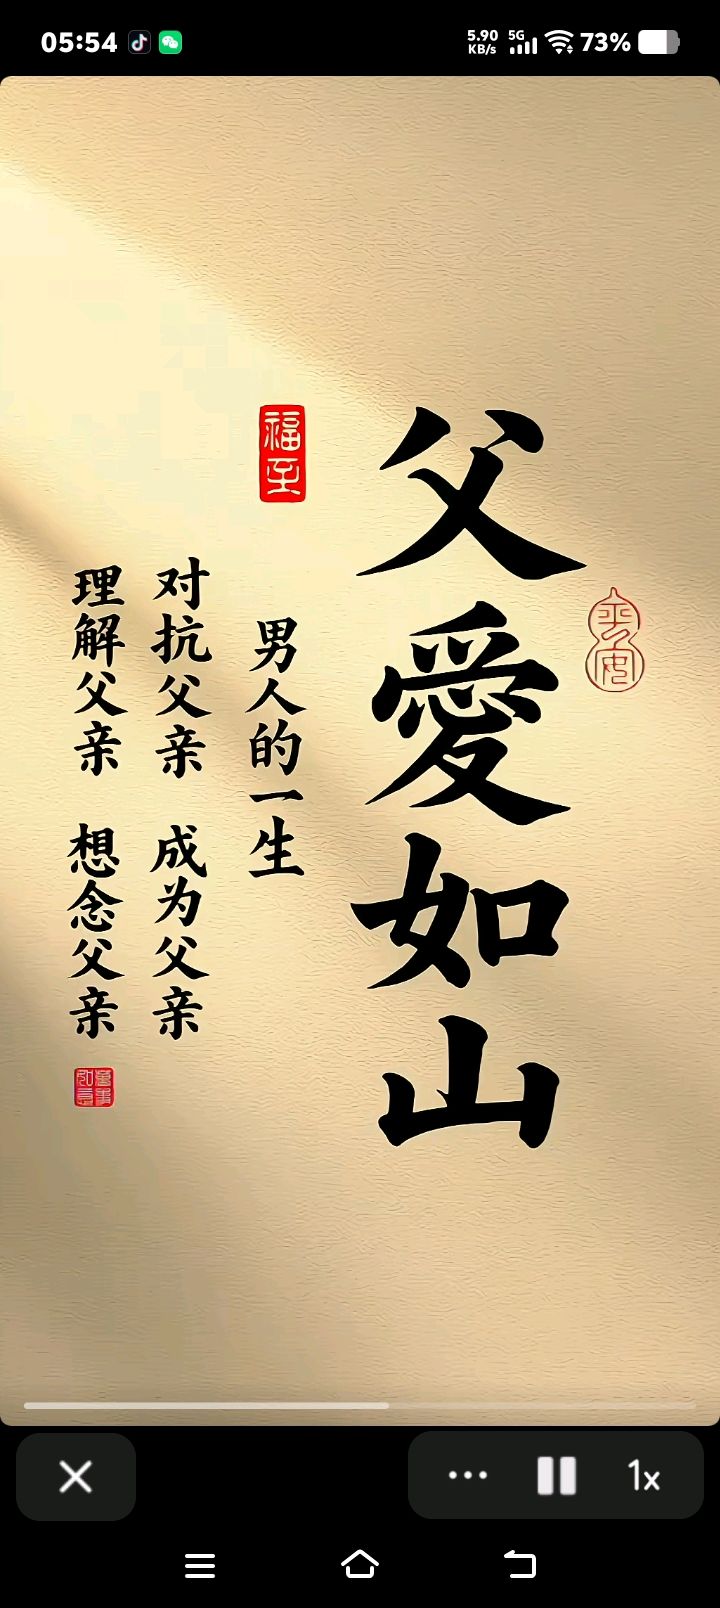 05:54
5.90 KB/s
5G
73%
父愛如山
福至
男人的一生
对抗父亲 成为父亲
理解父亲 想念父亲
1x